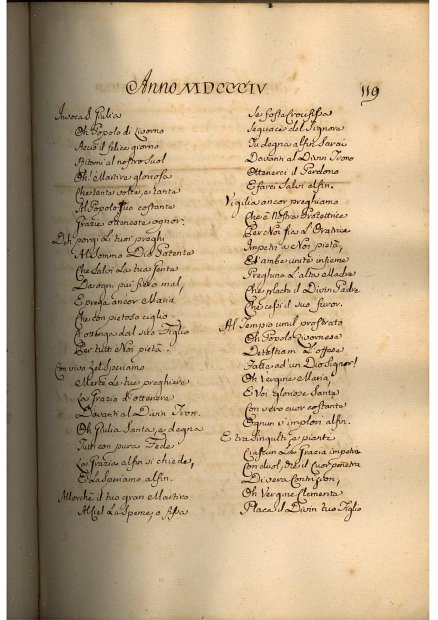 Anno MDCCCIV.
119
Invoca S. Giulia
Oh Popolo di Livorno
Acciò il felice giorno
Ritorni al nostro Suol
Oh! Martire gloriosa
Che tante volte, e tante
Al Popolo tuo costante
Grazie otteneste ognor.
Deh porgi le tuoi preghi
Al Sommo Dio Potente
Che salvi la tua gente
Da ogni più fiero mal,
E prega ancor Maria
Che con pietoso ciglio
Ottenga dal suo Figlio
Per tutti Noi pietà.
Con viva fè Speriamo
Mercè le tue preghiere
La Grazia d'ottenere
Davanti al Divin Tron.
Oh Giulia Santa, e degna
Tutti con pura Fede
La Grazia alfin si chiede,
E la Speriamo alfin.
Allorchè il tuo gran Martiro
Al Ciel la Speme, o fissa
Se fosti Crocifissa
Seguace del Signore
Tu degna alfin sarai
Davanti al Divin Trono
Ottenerci il Perdono
E farci Salvi alfin.
Vigilia ancor preghiamo
Che è Nostra Protettrice
Per Noi fia l'Oratrice
Impetri a Noi pietà,
Et ambe unite insieme
Preghino l'alta Madre
Che plachi il Divin Padre
Che cessi il suo furor.
Al Tempio umil prostrato
Oh Popolo Livornese
Detestiam l'offese
Fatte ad un Dio Signor!
Oh Vergine Maria
E Voi Gloriose Sante
Con vero cuor costante
Ognun v'implori alfin.
E tra Singulti, e pianti
Ciascun La Grazia impetra
Con duol, che il Cuor penetra
Di vera Contrizion,
Oh Vergine Clemente
Placa il Divin tuo Figlio